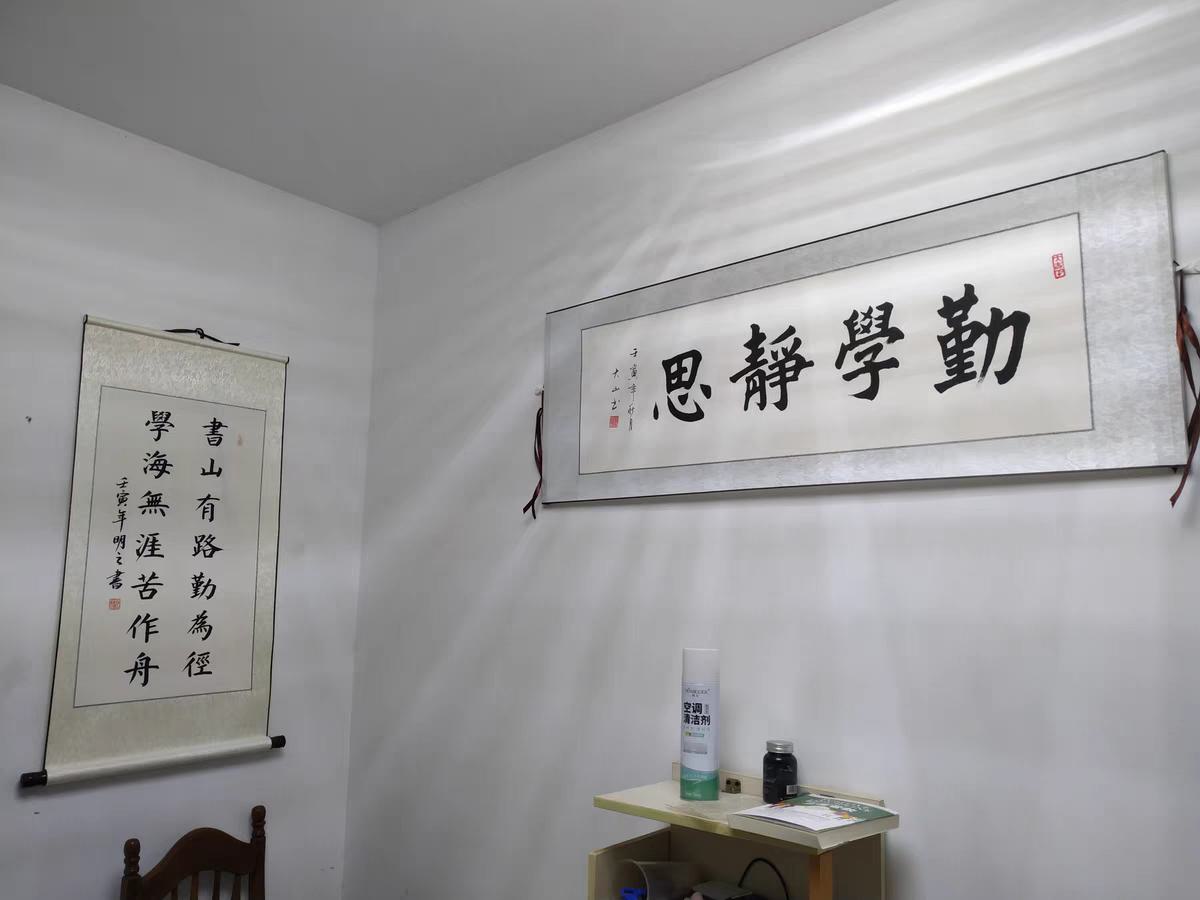 書山有路勤為徑
學海無涯苦作舟
壬寅年明之書
勤學靜思
壬寅年秋月
大山书
空调
清洁剂